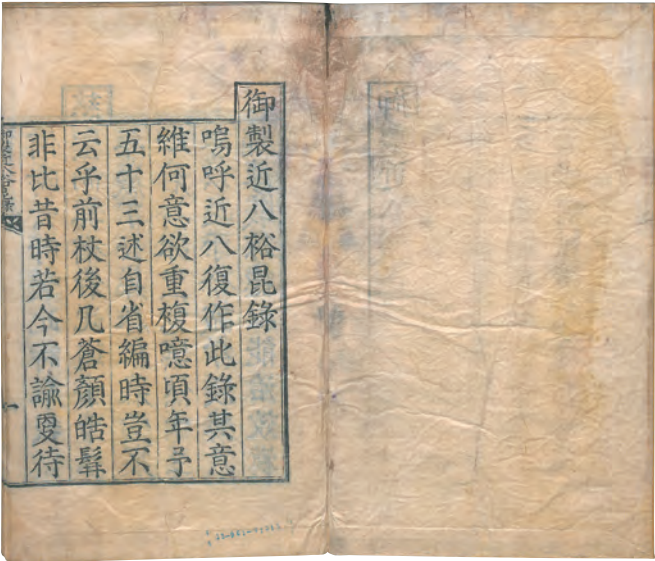 御製近八裕昆錄
嗚呼近八復作此錄其意
維何意欲重複噫頃年予
五十三述自省編時豈不
云乎前杖後几蒼顏皓髯
非比昔時若今不諭更待